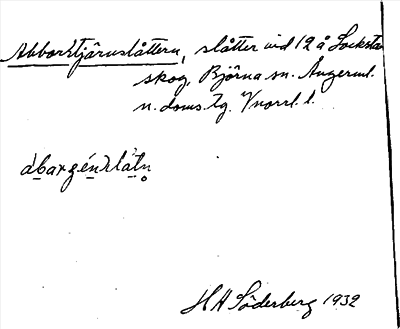 Abborrtjärnslåttern, slåtter vid 12 å Locksta
skog, Björna sn. Ångerml.
n. doms. tg. Vnorrl. l.
abargénslåtn̥
HA Söderberg 1932